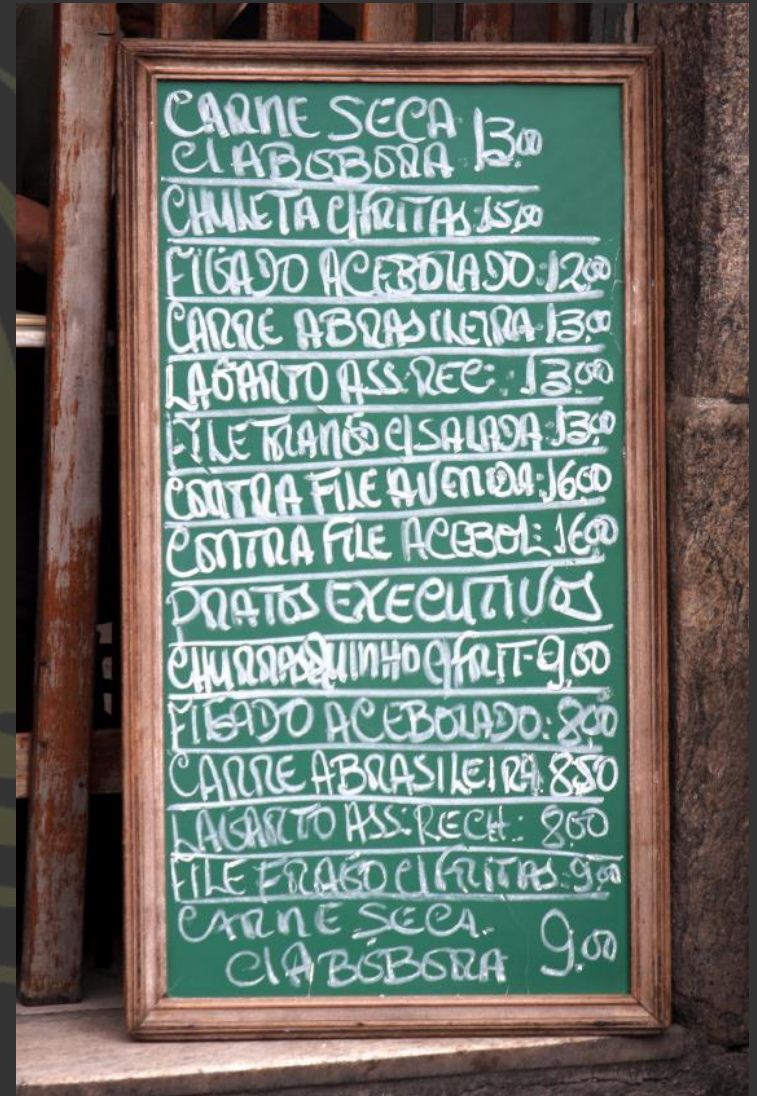 CARNE SECA 13,00
C/ ABÓBORA
CHULETA C/ FRITAS 15,00
FIGADO ACEBOLADO: 12,00
CARRE ABRASILEIRA 13,00
LAGARTO ASS. REC: 13,00
FILE FRANGO C/ SALADA 13,00
CONTRA FILE AVENIDA: 16,00
CONTRA FILE ACEBOL: 16,00
PRATOS EXECUTIVOS
CHURRASQUINHO C/ FRIT- 9,00
FIGADO ACEBOLADO: 8,00
CARRE ABRASILEIRA: 8,50
LAGARTO ASS: RECH: 8,00
FILE FRAGO C/ FRITAS: 9,00
CARNE SECA 9,00
C/ ABÓBORA